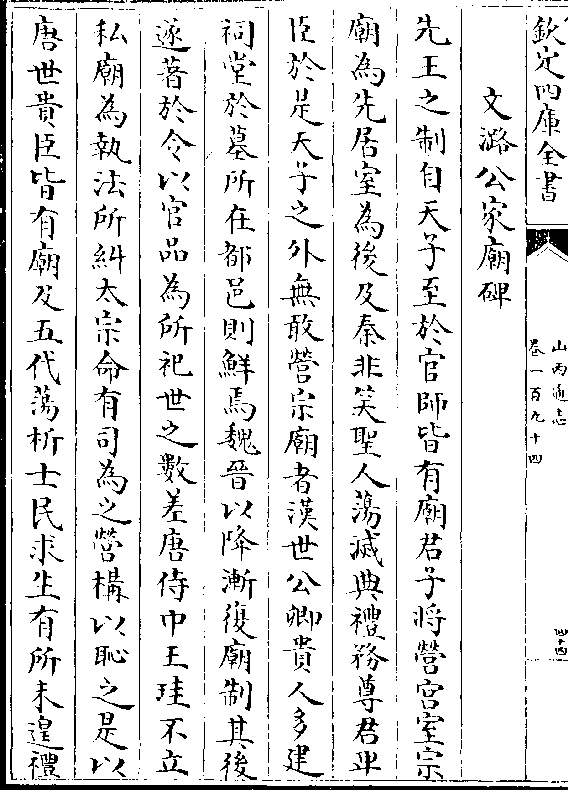 欽定四庫全書
山西通志
卷一百九十四
四十四
文潞公家廟碑
先王之制自天子至於官師皆有廟君子將營宮室宗
廟為先居室為後及秦非笑聖人蕩滅典禮務尊君卑
臣於是天子之外無敢營宗廟者漢世公卿貴人多建
祠堂於墓所在都邑則鮮焉魏晉以降漸復廟制其後
遂著於令以官品為所祀世之數差唐侍中王珪不立
私廟為執法所糾太宗命有司為之營構以恥之是以
唐世貴臣皆有廟及五代蕩析士民求生有所未遑禮